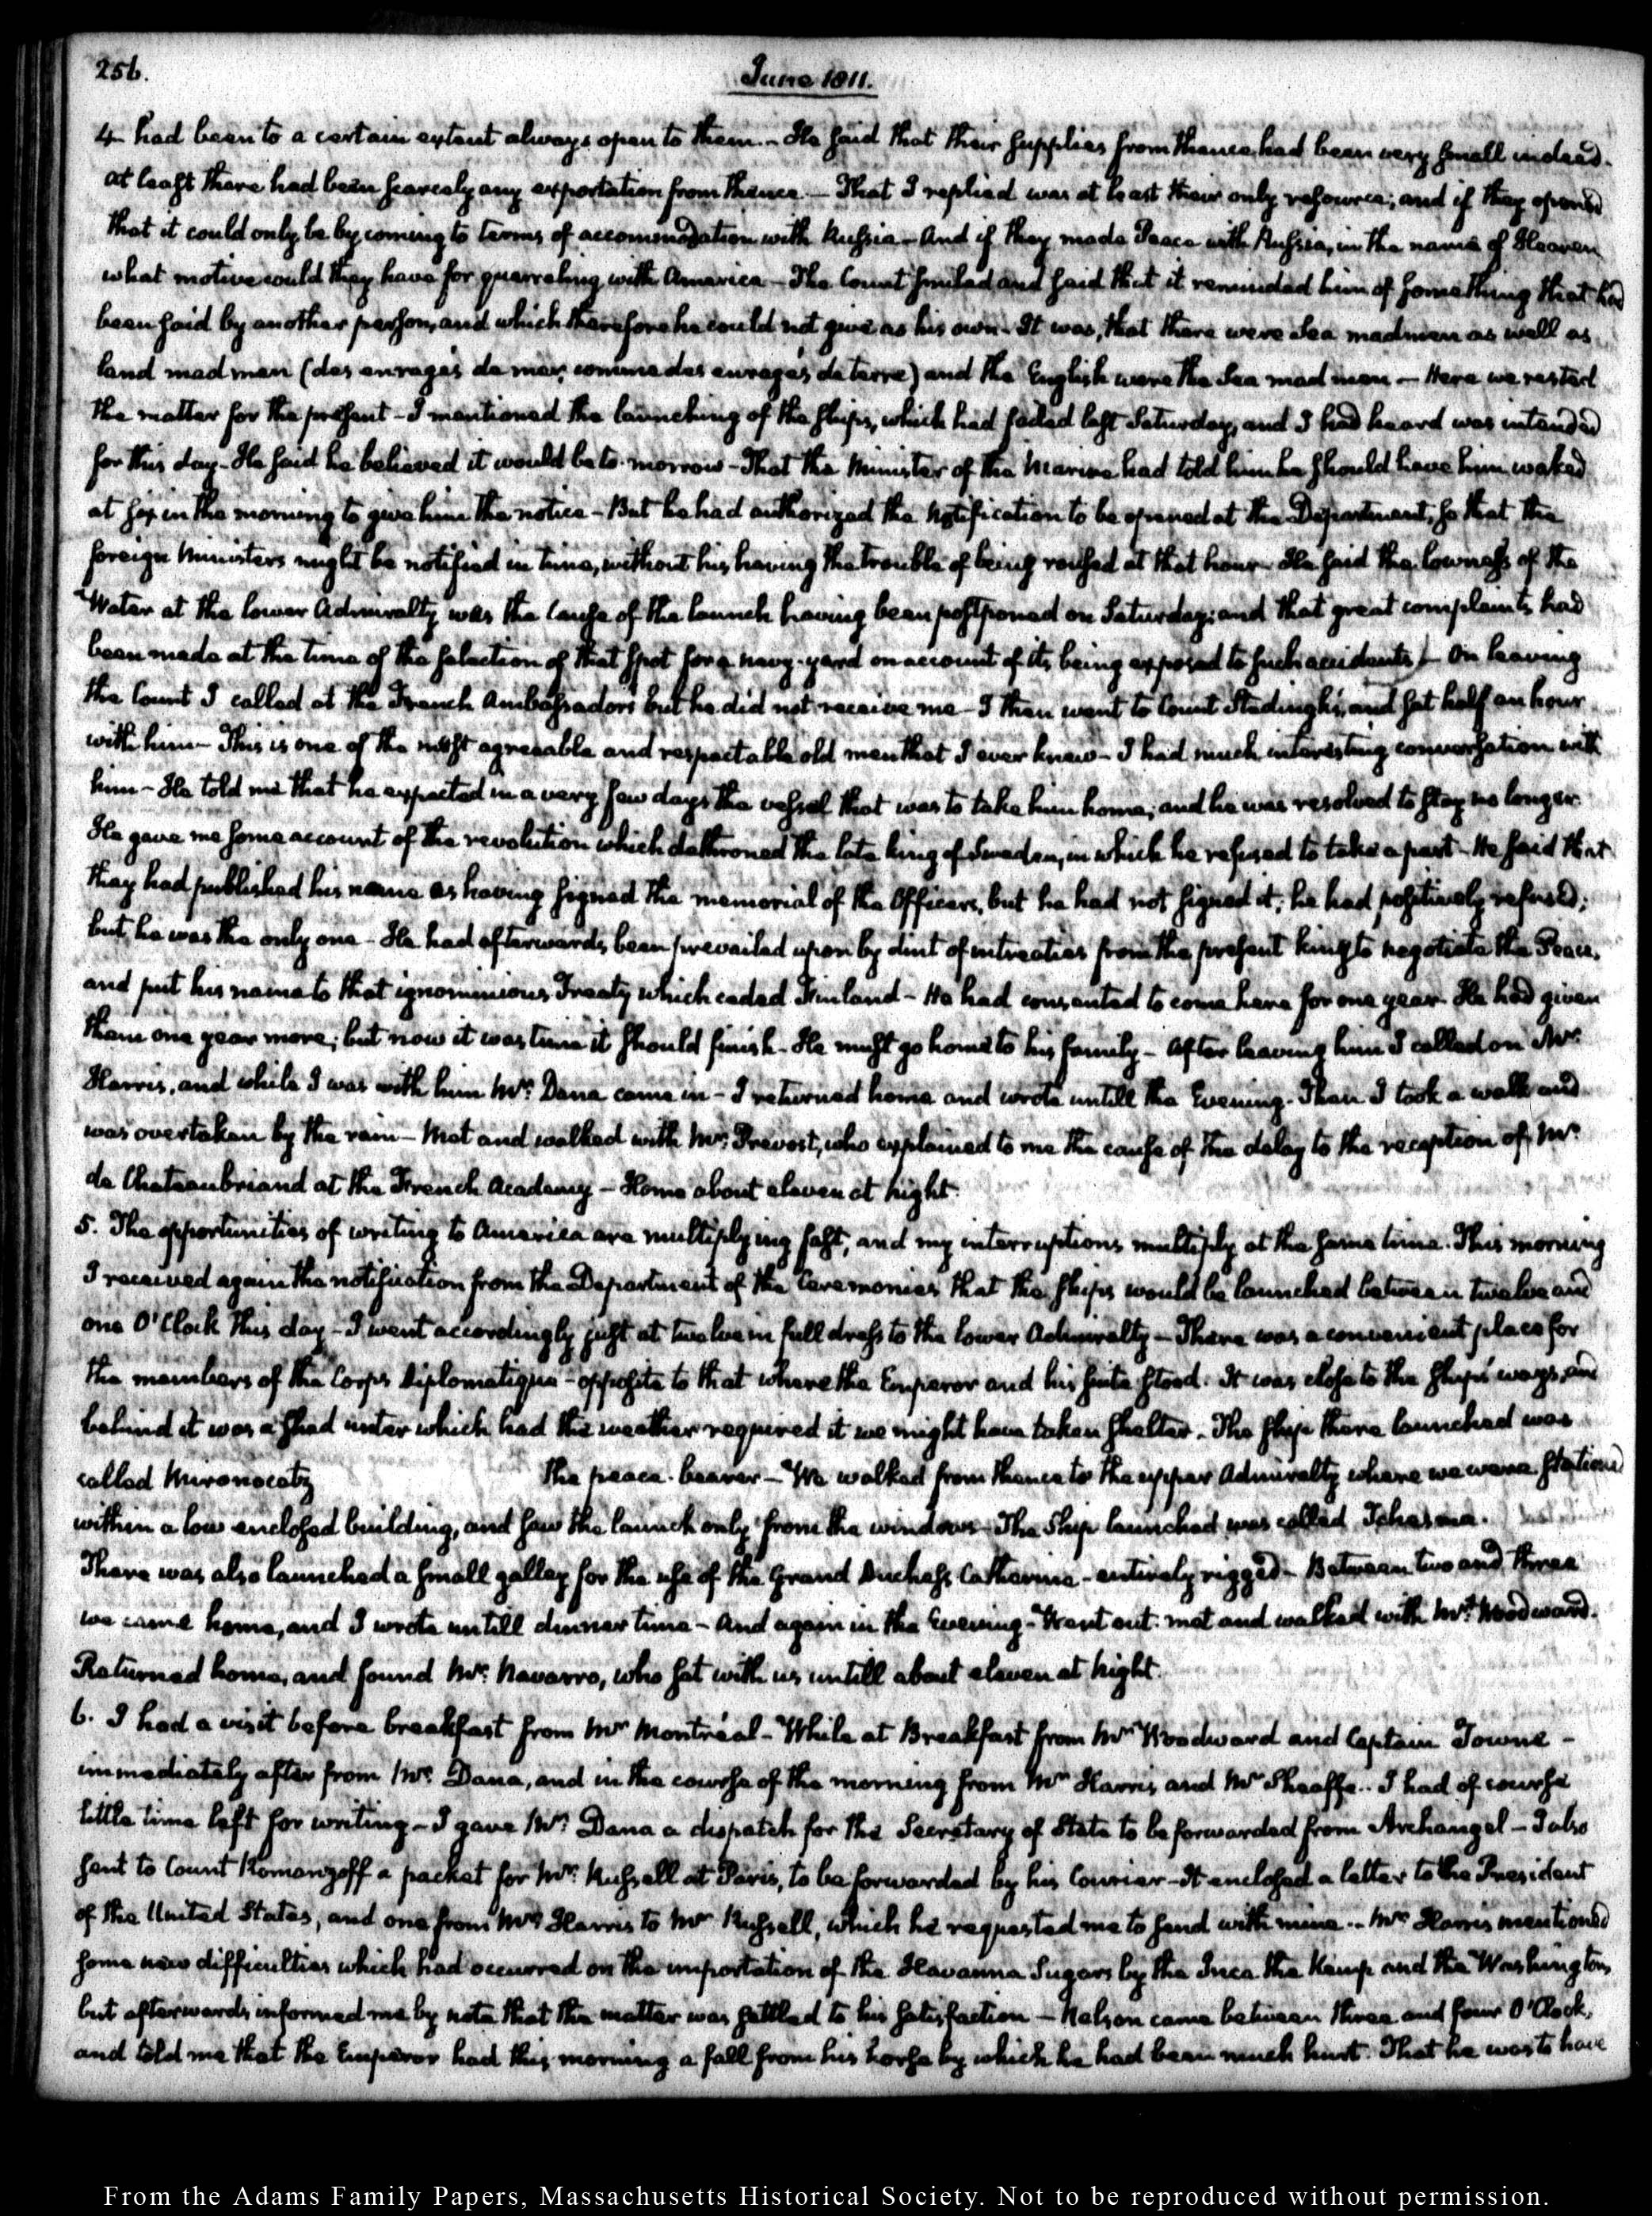 256.
June 1811.
4 had been to a certain extent always open to them.- He said that their supplies from thence had been very small indeed.
at least there had been scarcely any exportation from thence.- That I replied was at least their only resource; and if they opened
that it could only be by coming to terms of accommodation with Russia- And if they made Peace with Russia, in the name of Heaven
what motive could they have for quarreling with America- The Count smiled and said that it reminded him of something that had
been said by another person, and which therefore he could not give as his own- It was, that there were Sea madmen as well as
land madmen (des enragés de mer, comme des enragés de terre) and the English were the Sea mad men- Here we rested
the matter for the present- I mentioned the launching of the ships, which had failed last Saturday, and I had heard was intended
for this day- He said he believed it would be to-morrow- That the Minister of the Marine had told him he should have him waked
at six in the morning to give him the notice- But he had authorized the Notification to be opened at the Department, so that the
foreign Ministers might be notified in time, without his having the trouble of being roused at that hour- He said the lowness of the
Water at the lower Admiralty was the cause of the launch having been postponed on Saturday; and that great complaints had
been made at the time of the selection of that spot for a navy-yard on account of its being exposed to such accidents- On leaving
the Count I called at the French Ambassador's but he did not receive me- I then went to Count Stedingk's, and sat half an hour
with him- This is one of the most agreeable and respectable old men that I ever knew- I had much interesting conversation with
him- He told me that he expected in a very few days the vessel that was to take him home; and he was resolved to stay no longer.
He gave me some account of the revolution which dethroned the late king of Sweden, in which he refused to take a part- He said that
they had published his name as having signed the memorial of the Officers, but he had not signed it; he had positively refused;
but he was the only one- He had afterwards been prevailed upon by dint of intreaties from the present king to negotiate the Peace,
and put his name to that ignominious Treaty which ceded Finland- He had consented to come here for one year- He had given
them one year more; but now it was time it should finish- He must go home to his family- After leaving him I called on Mr.
Harris, and while I was with him Mr. Dana came in- I returned home and wrote untill the Evening- Then I took a walk and
was overtaken by the rain- Met and walked with Mr. Prevost, who explained to me the cause of the delay to the reception of Mr.
de Chateaubriand at the French Academy- Home about eleven at night.
5. The opportunities of writing to America are multiplying fast, and my interruptions multiply at the same time. This morning
I received again the notification from the Department of the Ceremonies that the ships would be launched between twelve and
one O'Clock this day- I went accordingly just at twelve in full dress to the lower Admiralty- There was a convenient place for
the members of the Corps Diplomatique- opposite to that where the Emperor and his suite stood. It was close to the ships' ways, and
behind it was a shed under which had the weather required it we might have taken shelter. The ship there launched was
called Mironocetz The peace-bearer- We walked from thence to the upper Admiralty where we were stationed
within a low enclosed building, and saw the launch only from the windows- The Ship launched was called Tchesma.
There was also launched a small galley for the use of the Grand Duchess Catherine- entirely rigged- Between two and three
we came home, and I wrote untill dinner time- And again in the Evening- Went out. met and walked with Mr. Woodward.
Returned home, and found Mr. Navarro, who sat with us untill about eleven at night.
6. I had a visit before breakfast from Mr Montréal- While at Breakfast from Mr Woodward and Captain Towne-
immediately after from Mr. Dana, and in the course of the morning from Mr Harris and Mr Sheaffe.. I had of course
little time left for writing- I gave Mr. Dana a dispatch for the Secretary of State to be forwarded from Archangel- I also
sent to Count Romanzoff a packet for Mr. Russell at Paris, to be forwarded by his Courier- It enclosed a letter to the President
of the United States, and one from Mr Harris to Mr Russell, which he requested me to send with mine.. Mr Harris mentioned
some new difficulties which had occurred on the importation of the Havanna Sugars by the Inca the Kemp and the Washington,
but afterwards informed me by note that the matter was settled to his satisfaction- Nelson came between three and four O'Clock,
and told me that the Emperor had this morning a fall from his horse by which he had been much hurt. That he was to have
From the Adams Family Papers, Massachusetts Historical Society. Not to be reproduced without permission.